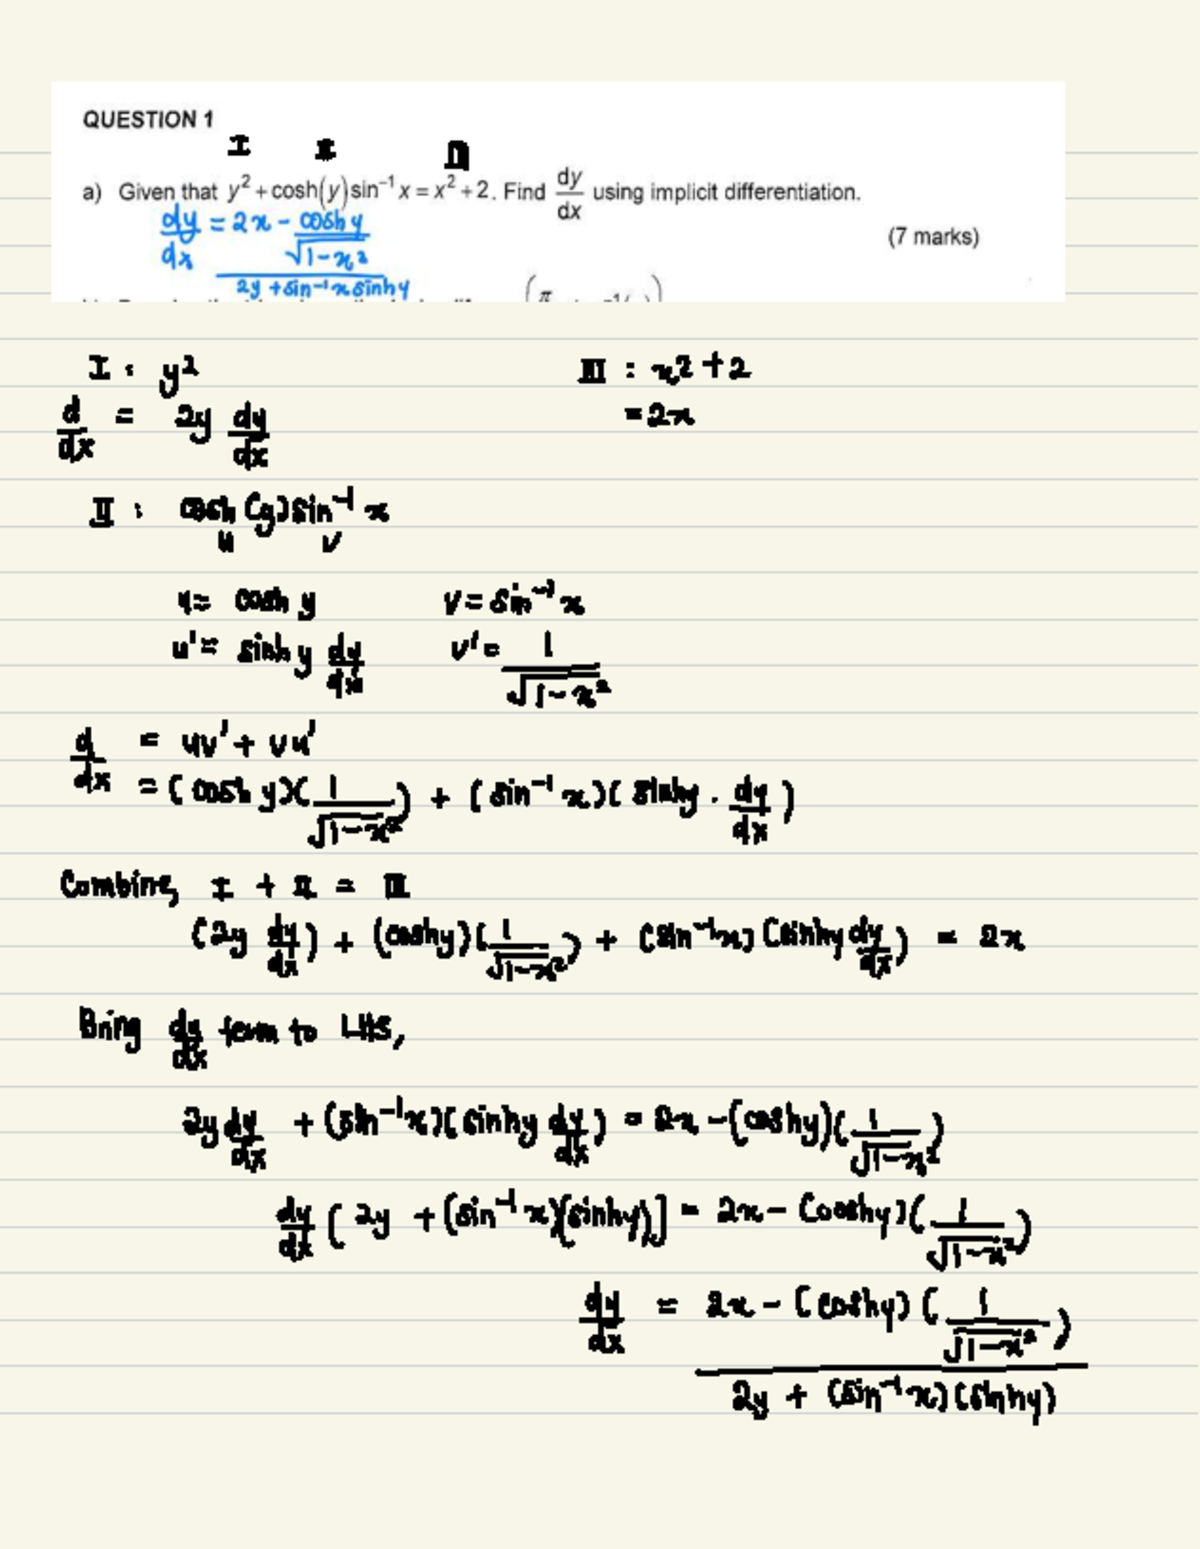 QUESTION 1
I II III
a) Given that y² + cosh(y) sin⁻¹ x = x² + 2. Find dy/dx using implicit differentiation.
(7 marks)
dy/dx = (2x - cosh y/√(1-x²)) / (2y + sin⁻¹x sinh y)
I : y²
III : x² + 2
d/dx = 2y dy/dx
= 2x
II : cosh (y) sin⁻¹ x
u v
u = cosh y v = sin⁻¹ x
u' = sinh y dy/dx v' = 1/√(1-x²)
d/dx = uv' + vu'
= (cosh y)(1/√(1-x²)) + (sin⁻¹ x)(sinhy · dy/dx)
Combine, I + II = III
(2y dy/dx) + (coshy)(1/√(1-x²)) + (sin⁻¹x)(sinhy dy/dx) = 2x
Bring dy/dx term to LHS,
2y dy/dx + (sin⁻¹x)(sinhy dy/dx) = 2x - (coshy)(1/√(1-x²))
dy/dx [2y + (sin⁻¹ x)(sinhy)] = 2x - (coshy)(1/√(1-x²))
dy/dx = (2x - (coshy)(1/√(1-x²))) / (2y + (sin⁻¹x)(sinhy))